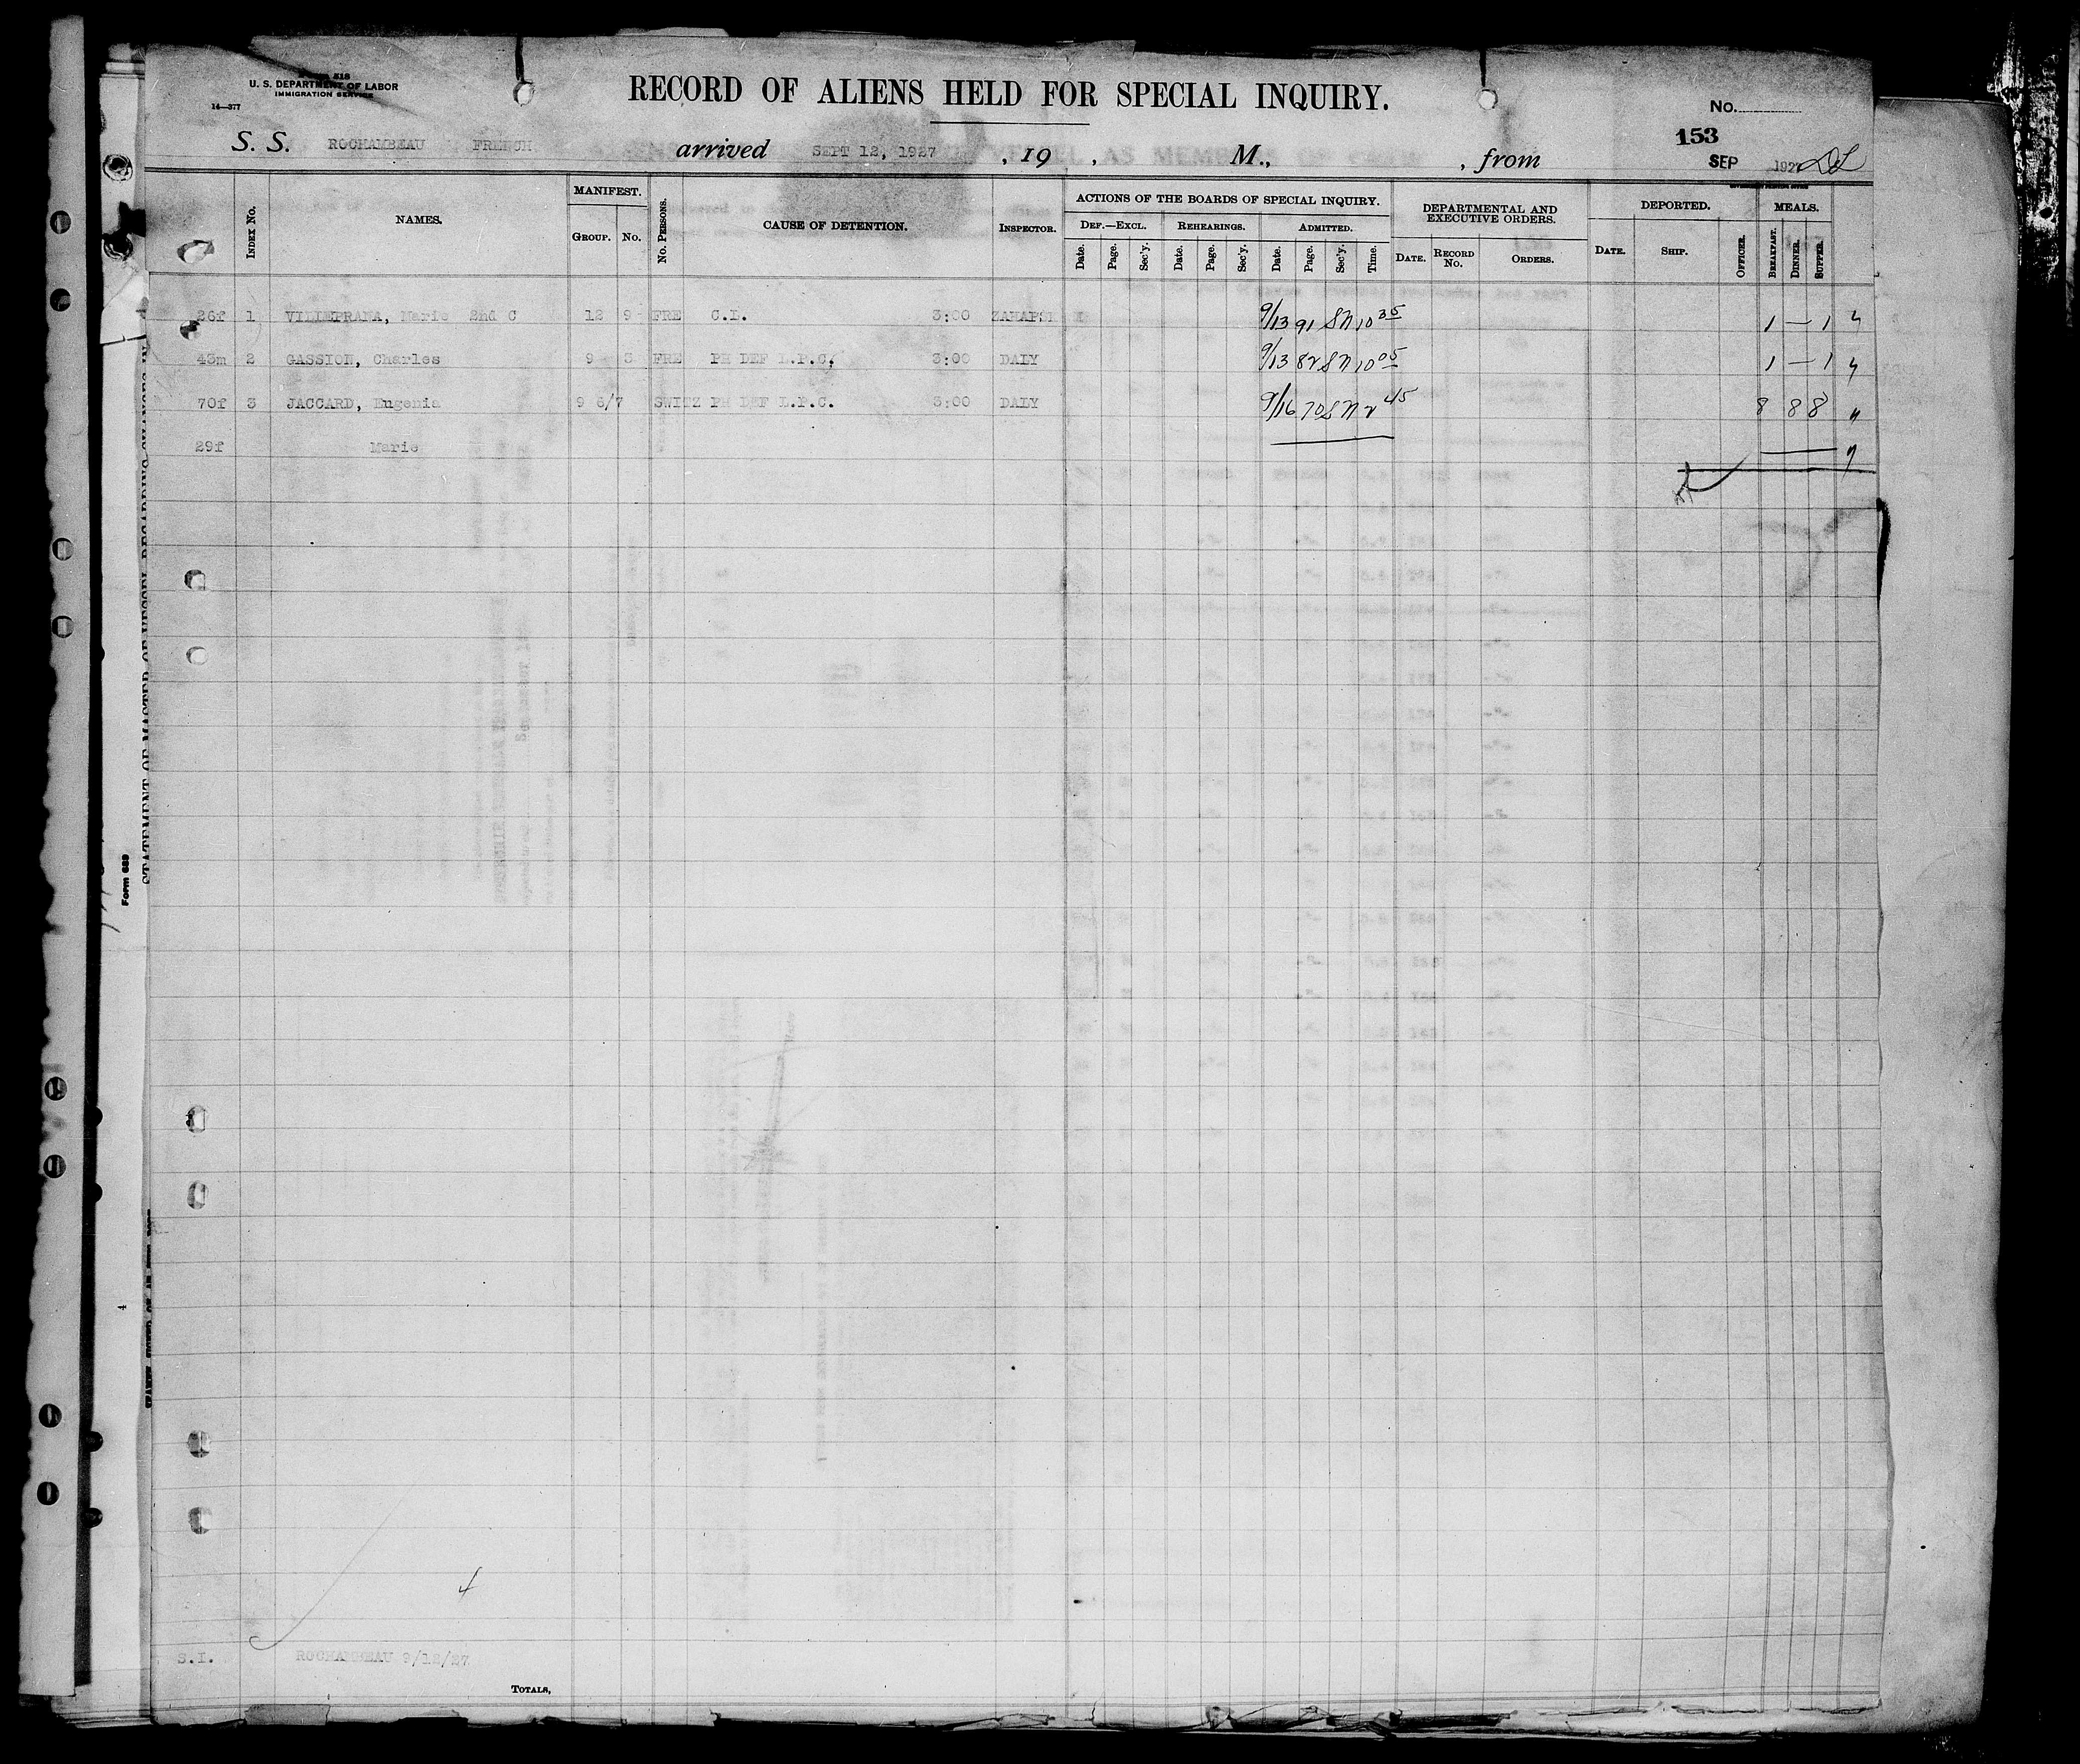 Form 518
U. S. DEPARTMENT OF LABOR
IMMIGRATION SERVICE
14—377
RECORD OF ALIENS HELD FOR SPECIAL INQUIRY.
No.
153
S. S. ROCHAMBEAU FRENCH arrived SEPT 12, 1927, 19 , M., , from SEP 1927
INDEX No. NAMES. MANIFEST. GROUP. No. No. PERSONS. CAUSE OF DETENTION. INSPECTOR. ACTIONS OF THE BOARDS OF SPECIAL INQUIRY. DEPARTMENTAL AND EXECUTIVE ORDERS. DEPORTED. MEALS.
DEF.—EXCL. REHEARINGS. ADMITTED.
Date. Page. Sec'y. Date. Page. Sec'y. Date. Page. Sec'y. Time. DATE. RECORD No. ORDERS. DATE. SHIP. OFFICER. BREAKFAST. DINNER. SUPPER.
26f 1 VILLEPRANA, Marie 2nd C 12 9 FRE C.I. 3:00 9/13 91 SN 10 35 1 — 1
43m 2 GASSION, Charles 9 3 FRE PH DEF L.P.C. 3:00 DALY 9/13 82 SN 10 05 1 — 1
70f 3 JACCARD, Eugenia 9 6/7 SWITZ PH DEF L.P.C. 3:00 DALY 9/16 70 SN 2 45 8 8 8
29f Marie
4
S.I. ROCHAMBEAU 9/12/27
TOTALS,
Form 689
STATEMENT OF MASTER OF VESSEL REGARDING CHANGES IN
4